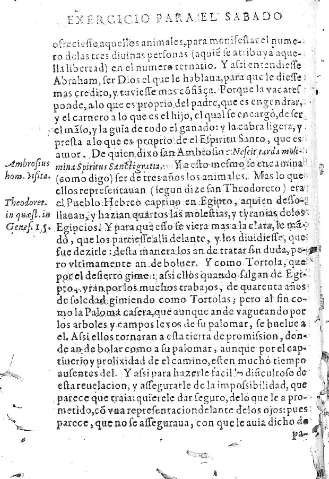 EXERCICIO PARA EL SABADO
ofreciesse aquellos animales, para manifestar el nume
ro de las tres diuinas personas (a quiẽ se atribuya aque-
lla libertad) en el numero ternario. Y assi entendiesse
Abraham, ser Dios el que le hablaua, para que le diesse
mas credito, y tuuiesse mas cõfiãça. Porque la vaca res
ponde, a lo que es proprio del padre, que es engendrar,
y el carnero a lo que es el hijo, el qual se encargó, de ser
el mãso, y la guia de todo el ganado: y la cabra ligera, y
presta a lo que es proprio de el Espiritu Santo, que es
amor. De quien dixo san Ambrosio: Nescit tarda moli-
mina Spiritus Sancti gratia. Y a esto mesmo se encamina
(como digo) ser de tres años los animales. Mas lo que
ellos representauan (segun dize san Theodoreto) era
el Pueblo Hebreo captiuo en Egipto, a quien desso-
llauan, y hazian quartos las molestias, y tyranias de los
Egipcios: Y para que esto se viera mas a la clara, le mã-
dó, que los partiesse alli delante, y los diuidiesse, que
fue dezirle: desta manera los an de tratar sin duda, pe-
ro vltimamente an de boluer. Y como Tortola, que
por el desierto gime: assi ellos quando salgan de Egi-
pto, yrán por los muchos trabajos, de quarenta años
de soledad, gimiendo como Tortolas; pero al fin co-
mo la Paloma casera, que aunque ande vagueando por
los arboles y campos lexos de su palomar, se buelue a
el. Assi ellos tornaran a esta tierra de promission, don-
de an de bolar como a su palomar, aunque por el cap-
tiuerio y prolixidad de el camino, esten mucho tiempo
ausentes del. Y assi para hazerle facil lo dificultoso de
esta reuelacion, y assegurarle de la impossibilidad, que
parece que traia: quierele dar seguro, de lo que le a pro-
metido, cõ vna representacion delante de los ojos: pues
parece, que no se asseguraua, con que le auia dicho de
pa-
Ambrosius
hom. visita.
Theodoret.
in quest. in
Genes. 15.